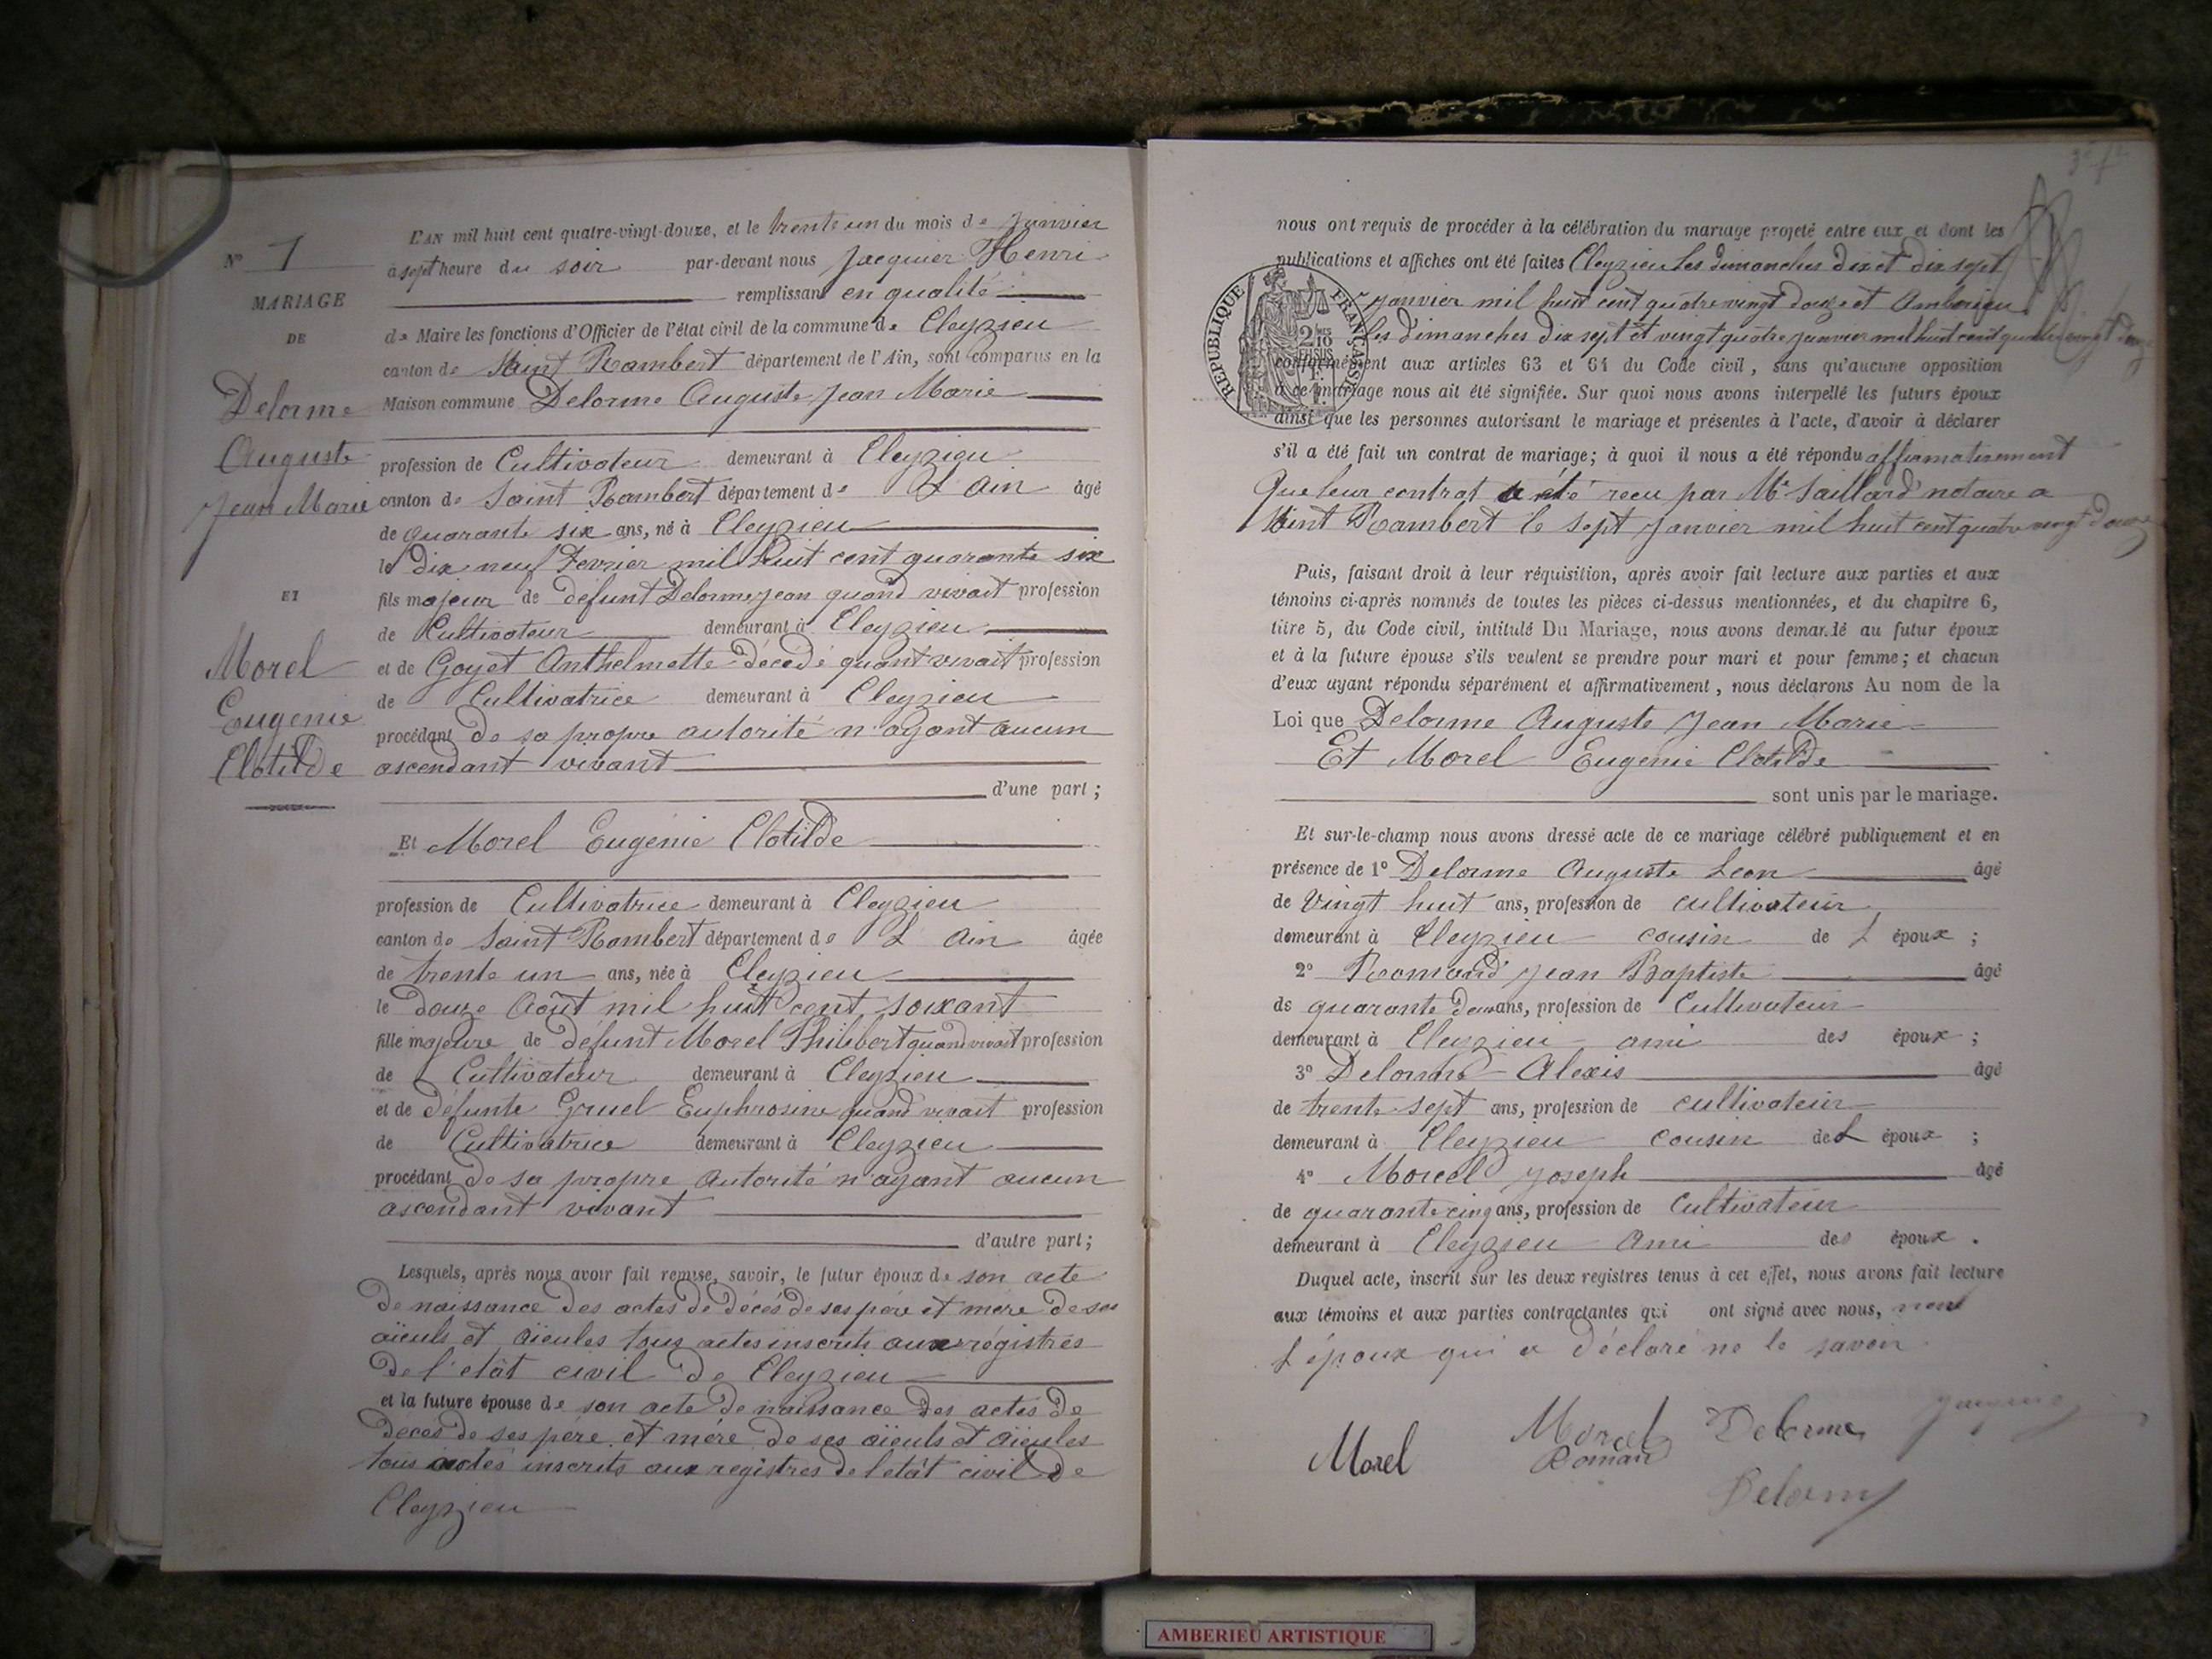 L'AN mil huit cent quatre-vingt-douze, et le trente un du mois de Janvier
à sept heure du soir par-devant nous Jacquier Henri
remplissant en qualité
de Maire les fonctions d'Officier de l'état civil de la commune de Cleyzieu
canton de Saint Rambert département de l'Ain, sont comparus en la
Maison commune Delorme Auguste Jean Marie
profession de Cultivateur demeurant à Cleyzieu
canton de Saint Rambert département de L Ain âgé
de quarante six ans, né à Cleyzieu
le dix neuf Fevrier mil huit cent quarante six
fils majeur de défunt Delorme Jean quand vivait profession
de Cultivateur demeurant à Cleyzieu
et de Goyet Anthelmette décédé quant vivait profession
de Cultivatrice demeurant à Cleyzieu
procédant de sa propre autorité n'ayant aucun
ascendant vivant
d'une part ;
Et Morel Eugénie Clotilde
profession de Cultivatrice demeurant à Cleyzieu
canton de Saint Rambert département de L Ain âgée
de trente un ans, née à Cleyzieu
le douze Août mil huit cent soixant
fille majeure de défunt Morel Philibert quand vivait profession
de Cultivateur demeurant à Cleyzieu
et de défunte Gruel Euphrosine quand vivait profession
de Cultivatrice demeurant à Cleyzieu
procédant de sa propre autorité n'ayant aucun
ascendant vivant
d'autre part ;
Lesquels, après nous avoir fait remise, savoir, le futur époux de son acte
de naissance des actes de décés de ses pére et mére de ses
aïeuls et aïeules tous actes inscrits aux régistres
de l'etât civil de Cleyzieu
et la future épouse de son acte de naissance des actes de
décés de ses pére et mére de ses aïeuls et aïeules
tous actes inscrits aux registres de l'etât civil de
Cleyzieu
N° 1
MARIAGE
DE
Delorme
Auguste
Jean Marie
ET
Morel
Eugenie
Clotilde
nous ont requis de procéder à la célébration du mariage projeté entre eux et dont les
publications et affiches ont été faites Cleyzieu les dimanches dix et dix sept
janvier mil huit cent quatre vingt douze et Amberieu
les dimanches dix sept et vingt quatre janvier mil huit cent quatre vingt douze
conformément aux articles 63 et 64 du Code civil, sans qu'aucune opposition
à ce mariage nous ait été signifiée. Sur quoi nous avons interpellé les futurs époux
ainsi que les personnes autorisant le mariage et présentes à l'acte, d'avoir à déclarer
s'il a été fait un contrat de mariage ; à quoi il nous a été répondu affirmativement
Que leur contrat a été recu par Me Saillard notaire a
Saint Rambert le sept Janvier mil huit cent quatre vingt douze
RÉPUBLIQUE FRANÇAISE
Puis, faisant droit à leur réquisition, après avoir fait lecture aux parties et aux
témoins ci-après nommés de toutes les pièces ci-dessus mentionnées, et du chapitre 6,
titre 5, du Code civil, intitulé Du Mariage, nous avons demandé au futur époux
et à la future épouse s'ils veulent se prendre pour mari et pour femme ; et chacun
d'eux ayant répondu séparément et affirmativement, nous déclarons Au nom de la
Loi que Delorme Auguste Jean Marie
Et Morel Eugénie Clotilde
sont unis par le mariage.
Et sur-le-champ nous avons dressé acte de ce mariage célébré publiquement et en
présence de 1° Delorme Auguste Leon âgé
de Vingt huit ans, profession de cultivateur
demeurant à Cleyzieu cousin de L époux ;
2° Romand Jean Baptiste âgé
de quarante deux ans, profession de Cultivateur
demeurant à Cleyzieu ami des époux ;
3° Delorme Alexis âgé
de trente sept ans, profession de cultivateur
demeurant à Cleyzieu cousin de L époux ;
4° Morel Joseph âgé
de quarante cinq ans, profession de Cultivateur
demeurant à Cleyzieu Ami des époux.
Duquel acte, inscrit sur les deux registres tenus à cet effet, nous avons fait lecture
aux témoins et aux parties contractantes qui ont signé avec nous,
L époux qui a déclaré ne le savoir
Morel Morel Delorme
Roman
Delorm
AMBERIEU ARTISTIQUE